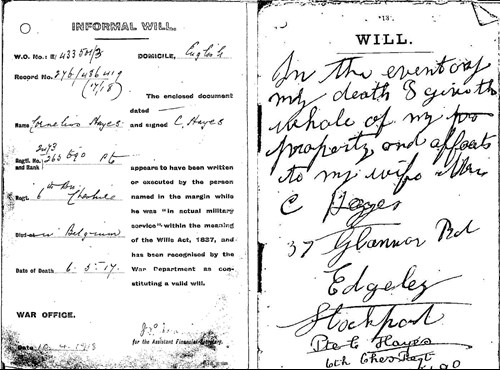 INFORMAL WILL.
W.O. No.: E/
DOMICILE, English
Record No.
(17/18)
The enclosed document
dated
Name Cornelius Hayes and signed C. Hayes
Regtl. No.
and Rank 263590 Pte
appears to have been written
or executed by the person
Regt. 6th Bn. Cheshire
named in the margin while
he was "in actual military
service" within the meaning
Died at Belgium
of the Wills Act, 1837, and
has been recognised by the
Date of Death 6.5.17.
War Department as con-
stituting a valid will.
WAR OFFICE.
for the Assistant Financial Secretary.
Date 10.4.1918
"13"
WILL.
In the event of
my death I give th
whole of my po
property and affects
to my wife Mrs
C Hayes
37 Rd
Edgeley
Stockport
Pte C Hayes
6th Ches Regt